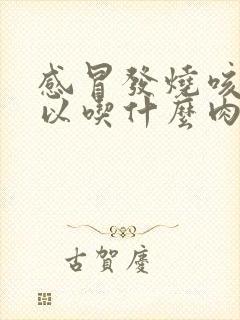 感冒發燒咳
以喫什麼肉
古賀慶